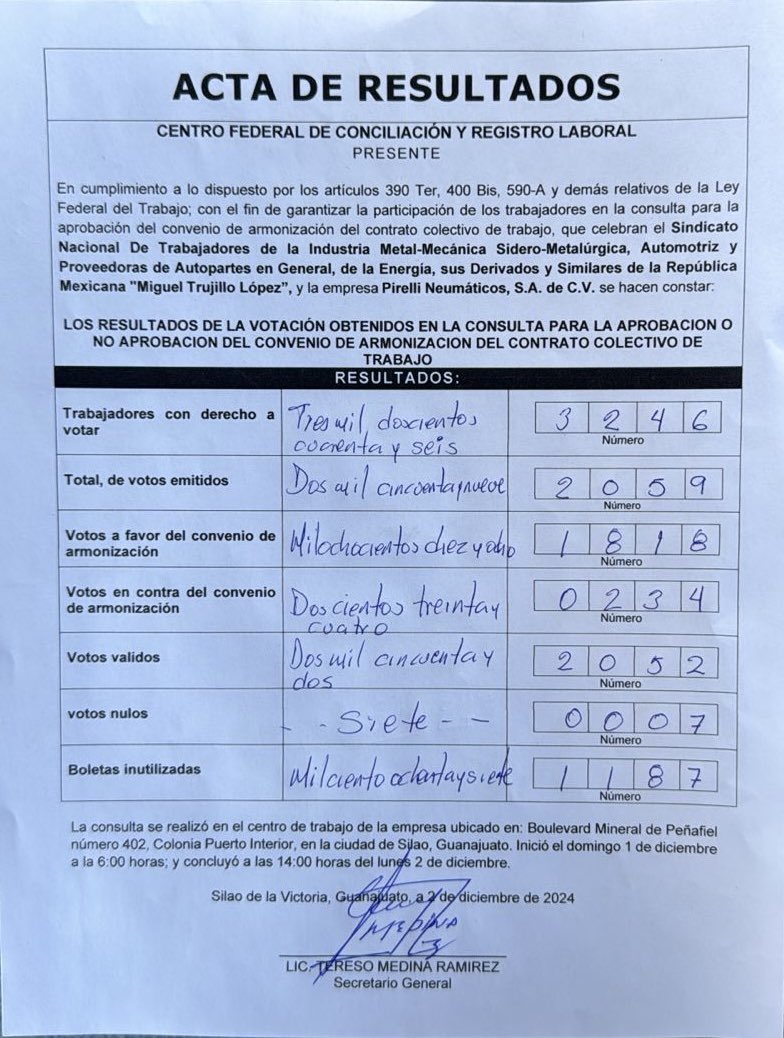 ACTA DE RESULTADOS
CENTRO FEDERAL DE CONCILIACIÓN Y REGISTRO LABORAL
PRESENTE
En cumplimiento a lo dispuesto por los artículos 390 Ter, 400 Bis, 590-A y demás relativos de la Ley
Federal del Trabajo; con el fin de garantizar la participación de los trabajadores en la consulta para la
aprobación del convenio de armonización del contrato colectivo de trabajo, que celebran el Sindicato
Nacional De Trabajadores de la Industria Metal-Mecánica Sidero-Metalúrgica, Automotriz y
Proveedoras de Autopartes en General, de la Energía, sus Derivados y Similares de la República
Mexicana "Miguel Trujillo López", y la empresa Pirelli Neumáticos, S.A. de C.V. se hacen constar:
LOS RESULTADOS DE LA VOTACIÓN OBTENIDOS EN LA CONSULTA PARA LA APROBACION O
NO APROBACION DEL CONVENIO DE ARMONIZACION DEL CONTRATO COLECTIVO DE
TRABAJO
RESULTADOS:
Trabajadores con derecho a
votar
Tres mil, doscientos
cuarenta y seis
3 2 4 6
Número
Total, de votos emitidos
Dos mil cincuenta y nueve
2 0 5 9
Número
Votos a favor del convenio de
armonización
Mil ochocientos diez y ocho
1 8 1 8
Número
Votos en contra del convenio
de armonización
Doscientos treinta y
cuatro
0 2 3 4
Número
Votos validos
Dos mil cincuenta y
dos
2 0 5 2
Número
votos nulos
- - Siete - -
0 0 0 7
Número
Boletas inutilizadas
Mil ciento ochenta y siete
1 1 8 7
Número
La consulta se realizó en el centro de trabajo de la empresa ubicado en: Boulevard Mineral de Peñafiel
número 402, Colonia Puerto Interior, en la ciudad de Silao, Guanajuato. Inició el domingo 1 de diciembre
a la 6:00 horas; y concluyó a las 14:00 horas del lunes 2 de diciembre.
Silao de la Victoria, Guanajuato, a 2 de diciembre de 2024
MEDINA
LIC. TERESO MEDINA RAMIREZ
Secretario General